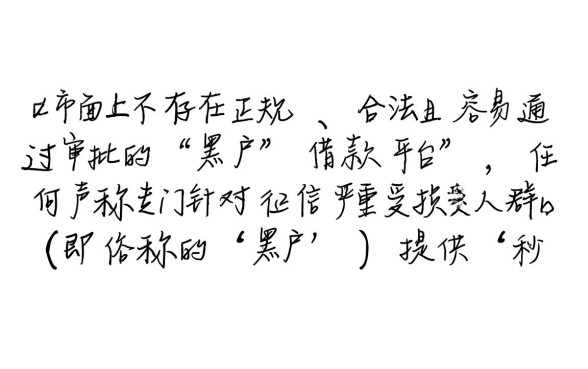 市面上不存在正规、合法且容易通
过审批的“黑户”借款平台”，任
何声称专门针对征信严重受损人群
(即俗称的‘黑户’)提供‘秒